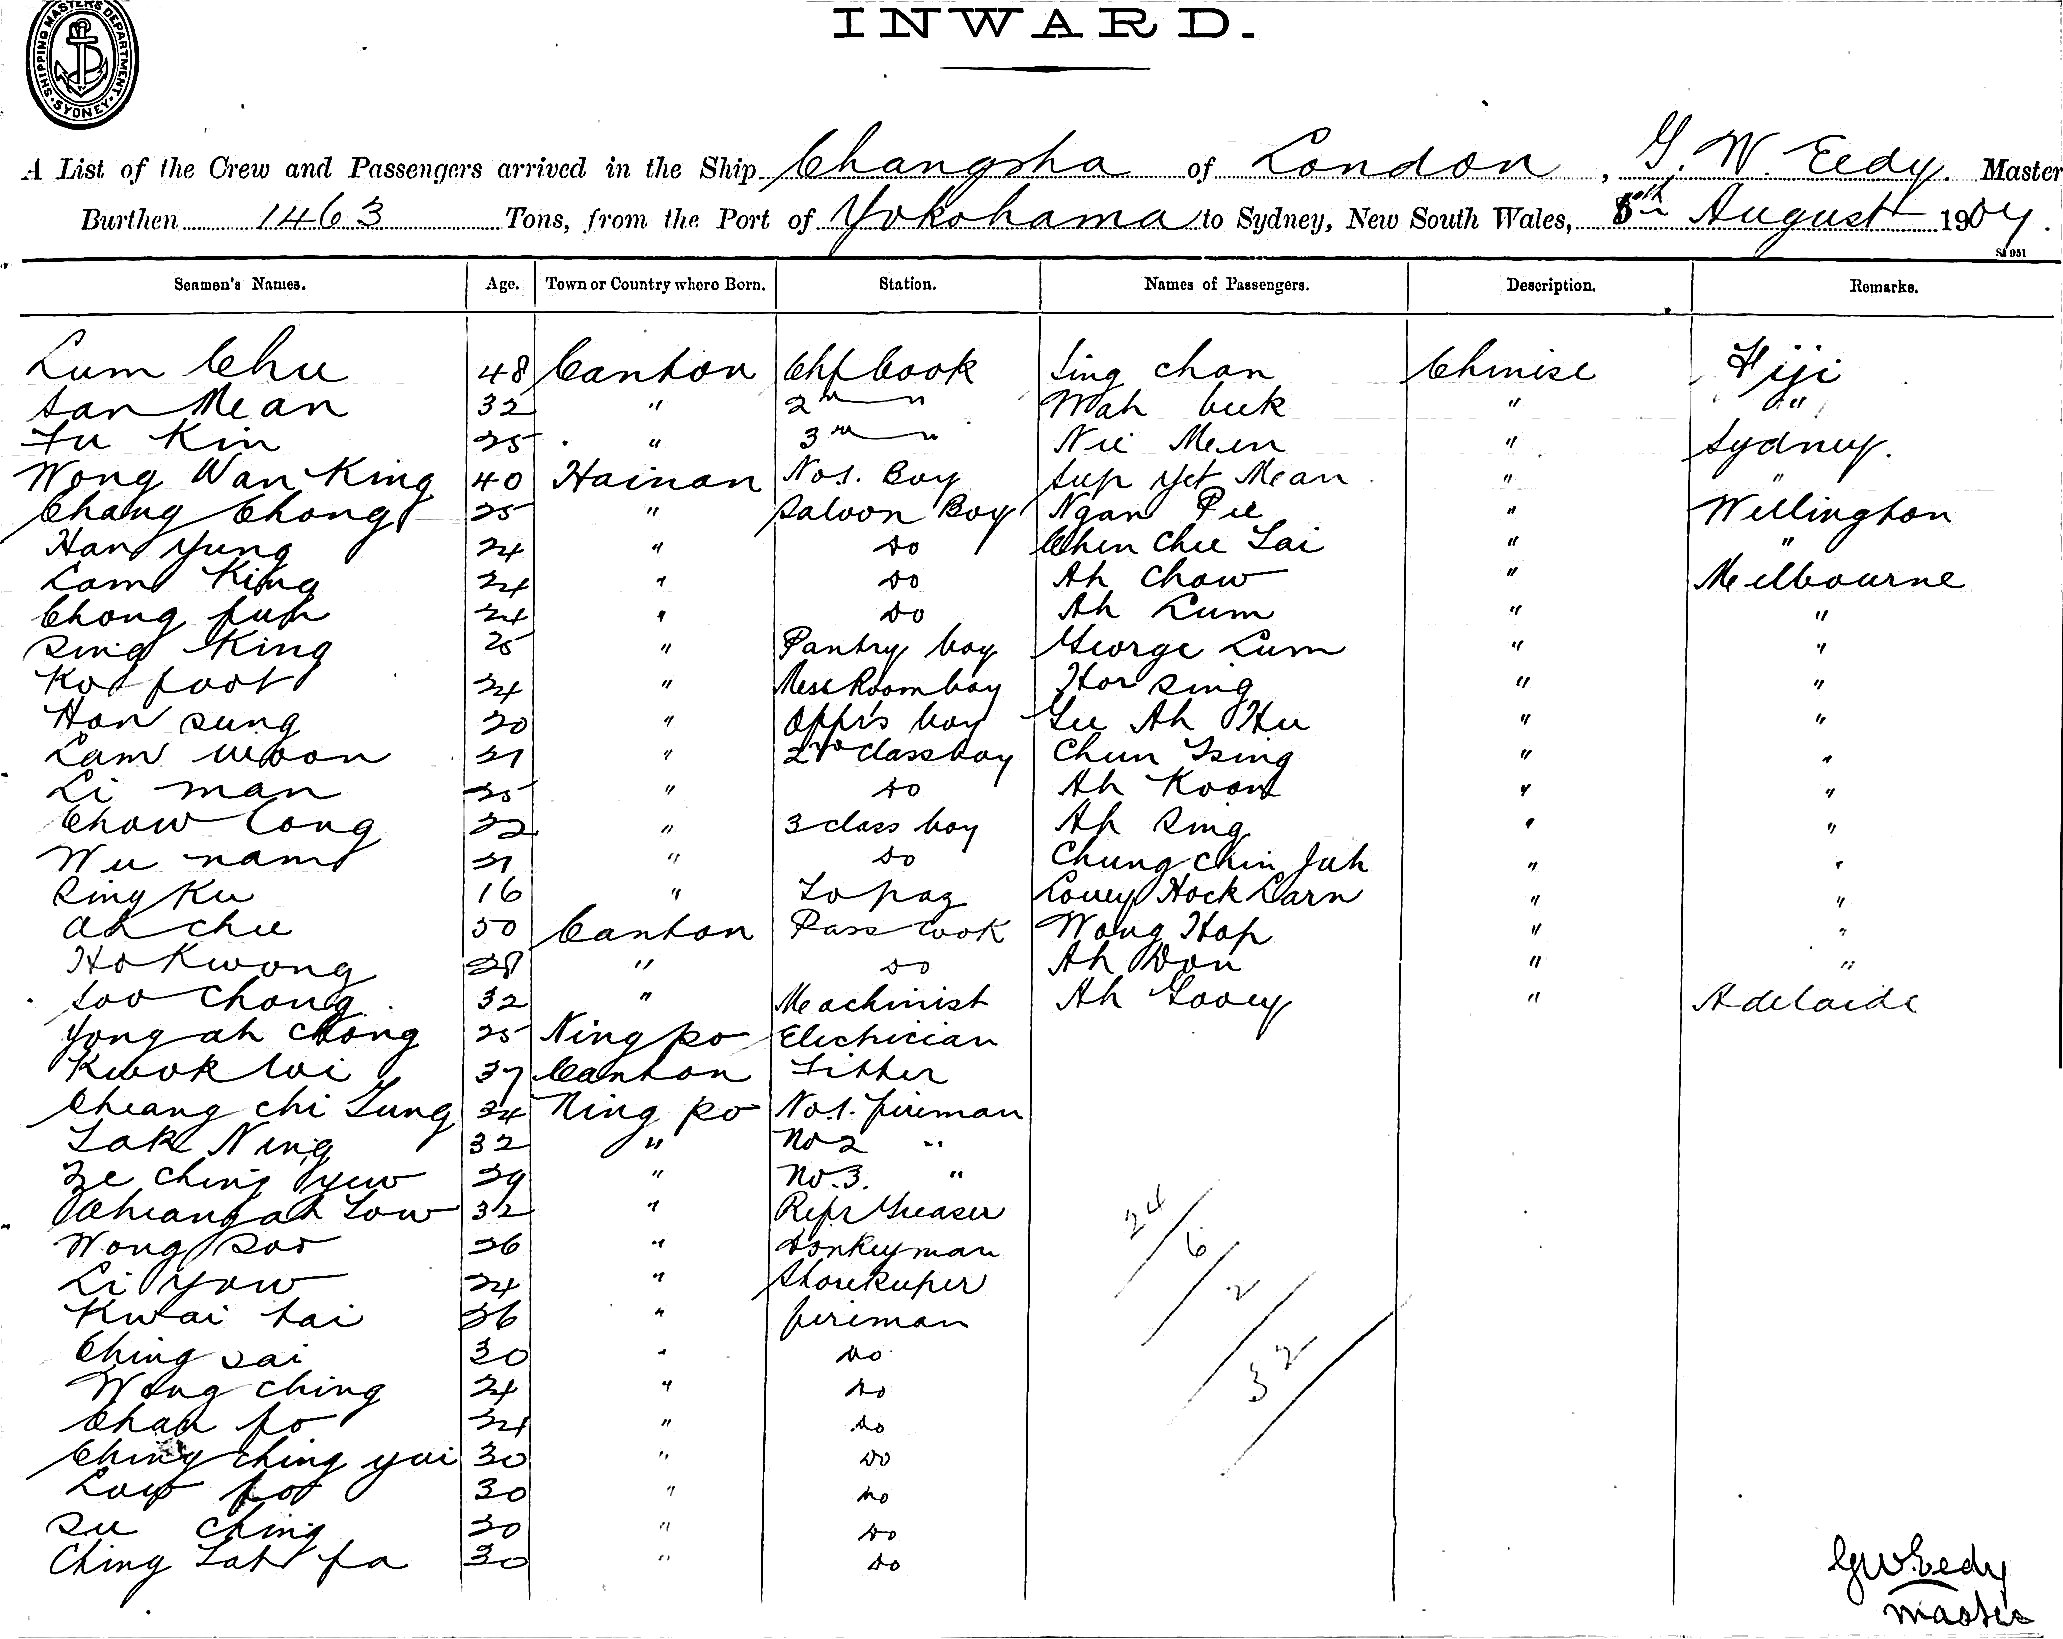 SHIPPING MASTERS DEPARTMENT · SYDNEY ·
INWARD.
A List of the Crew and Passengers arrived in the Ship Changsha of London, G. W. Eedy. Master
Burthen 1463 Tons, from the Port of Yokohama to Sydney, New South Wales, August 1904.
Seamen's Names. Age. Town or Country where Born. Station. Names of Passengers. Description. Remarks.
Lum Chu 48 Canton Chf Cook Sing Chan Chinise Fiji
San Mean 32 " 2nd " Mah Cuck " "
Fu Kin 25 " 3rd " Nie Mein " Sydney.
Wong Wan King 40 Hainan No 1. Boy Sup Yet Mean " "
Chang Chong 25 " Saloon Boy Ngan Pie " Wellington
Han Yung 24 " do Chin Chee Lai " "
Lam King 24 " do Ah Chow " Melbourne
Chong fuh 24 " do Ah Lum " "
Sing King 25 " Pantry boy George Lum " "
Ko foot 24 " Mess Room boy Hor Sing " "
Han Sung 20 " Offrs boy Lee Ah Hu " "
Lam Woon 21 " 2nd Class boy Chun Tsing " "
Li man 25 " do Ah Koon " "
Chow Cong 22 " 3 class boy Ah Sing " "
Wu nam 21 " do Chung Chin Juh " "
Sing Ku 16 " Topaz Louey Hock Larn " "
Ah chee 50 Canton Pass Cook Wong Hop " "
Ho Kwong 28 " do Ah Don " "
Soo Chong 32 " Meachinist Ah Gooey " Adelaide
Yong ah Chong 25 Ning po Electrician
Kwok Woi 37 Canton Fitter
Cheang chi Tung 34 Ning po No 1. fireman
Lak Ning 32 " No 2 "
Ze Ching Yew 29 " No. 3. "
Cheang ah Low 32 " Refr Greaser
Wong Soo 26 " Donkeyman
Li Yow 24 " Storekeeper
Kwai tai 36 " fireman
Ching Sai 30 " do
Wong Ching 24 " do
Chan fo 24 " do
Ching Ching yai 30 " do
Low fo 30 " do
Su Ching 30 " do
Ching Lah fa 30 " do
24/6/2/32
GW Eedy
Master